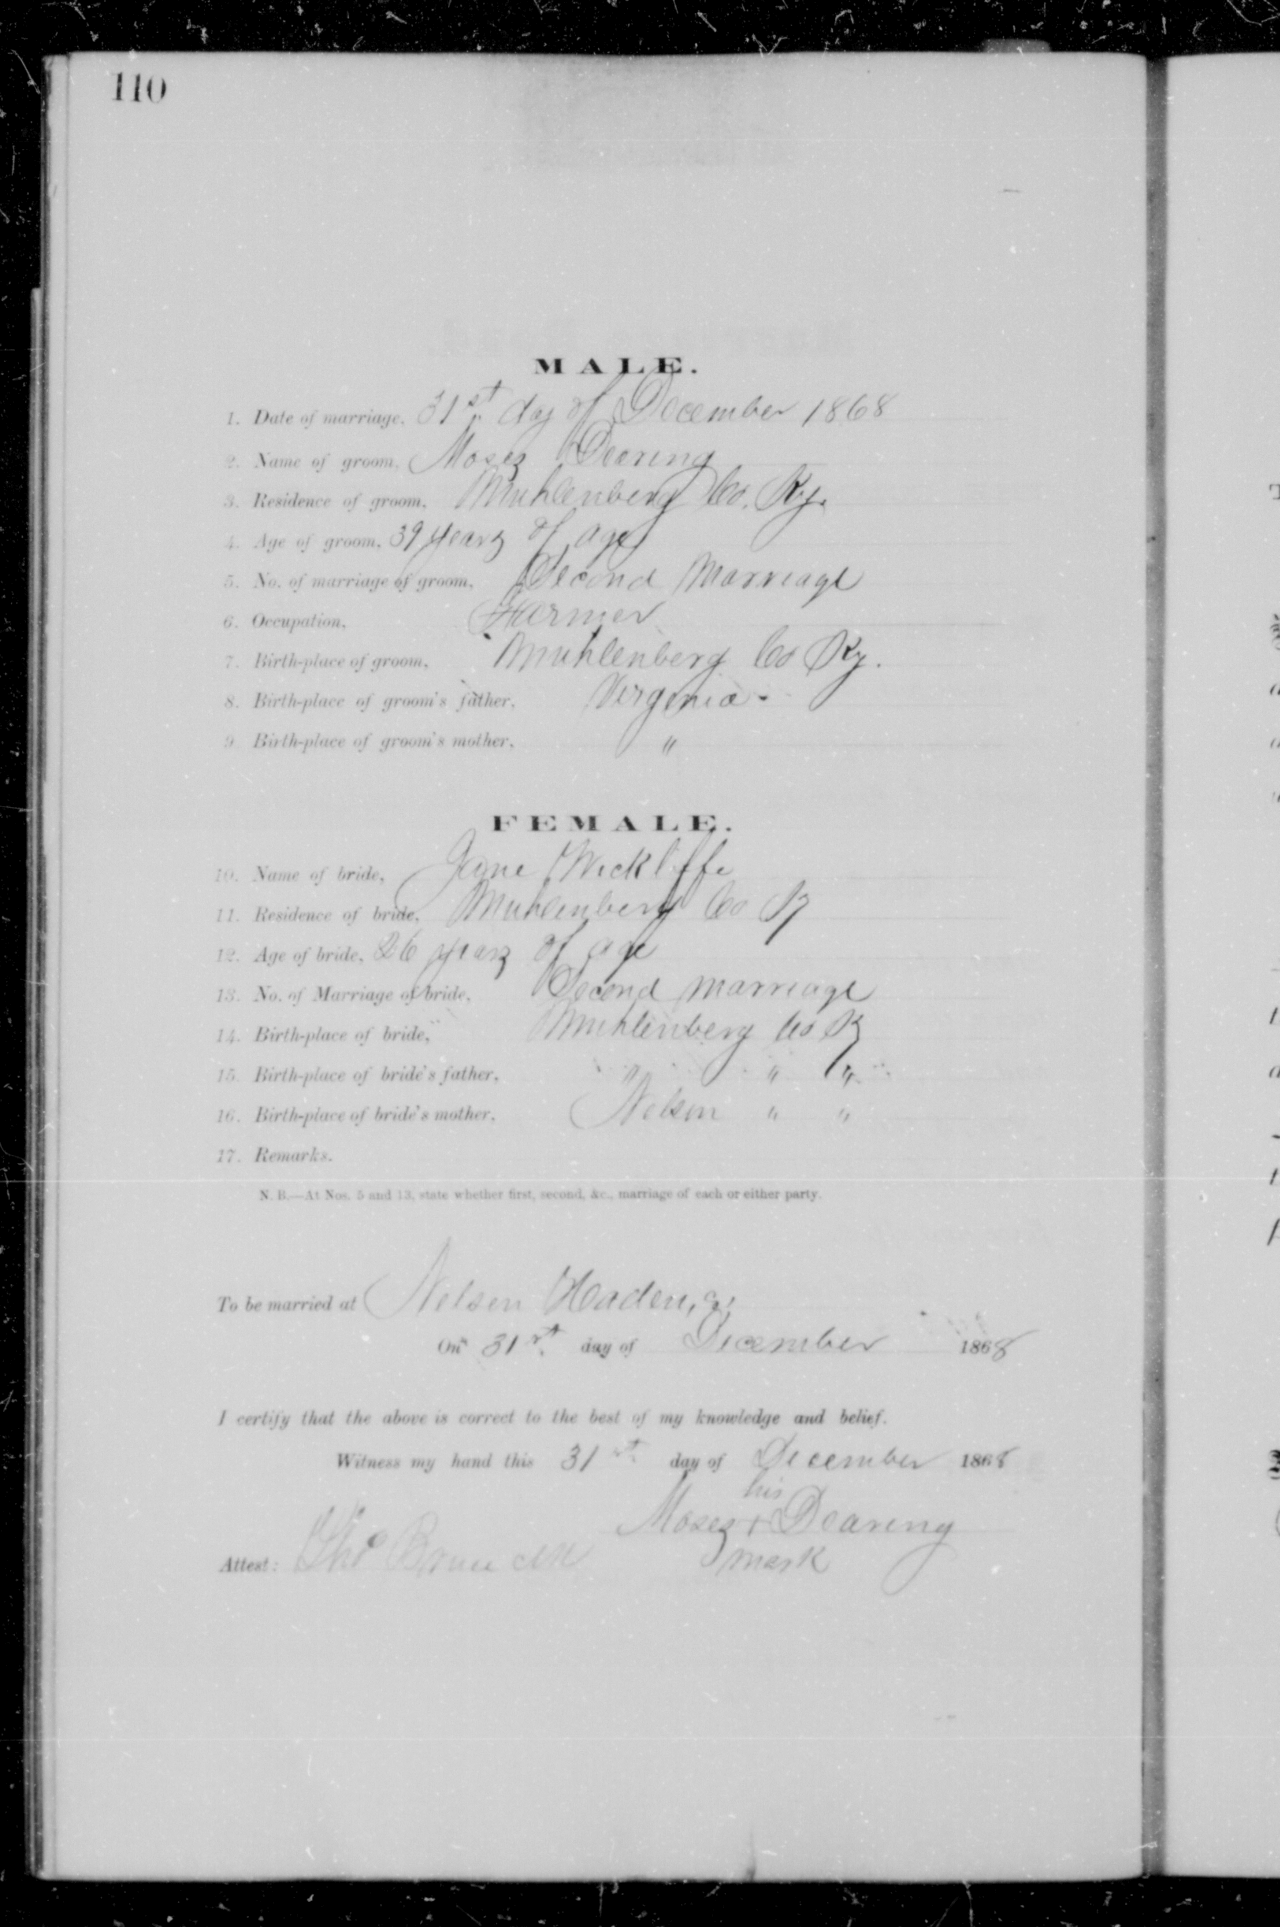 110
MALE.
1. Date of marriage, 31st day of December 1868
2. Name of groom, Moses Dearing
3. Residence of groom, Muhlenberg Co. Ky.
4. Age of groom, 39 years of age
5. No. of marriage of groom, Second Marriage
6. Occupation, Farmer
7. Birth-place of groom, Muhlenberg Co Ky.
8. Birth-place of groom's father, Virginia -
9. Birth-place of groom's mother, "
FEMALE.
10. Name of bride, Jane Wickliffe
11. Residence of bride, Muhlenberg Co Ky
12. Age of bride, 26 years of age
13. No. of Marriage of bride, Second marriage
14. Birth-place of bride, Muhlenberg Co Ky
15. Birth-place of bride's father, " " "
16. Birth-place of bride's mother, Nelson " "
17. Remarks.
N. B.—At Nos. 5 and 13, state whether first, second, &c., marriage of each or either party.
To be married at Nelson Hadens,
On 31st day of December 1868
I certify that the above is correct to the best of my knowledge and belief.
Witness my hand this 31st day of December 1868
his
Moses + Dearing
mark
Attest: Tho Bruce clk